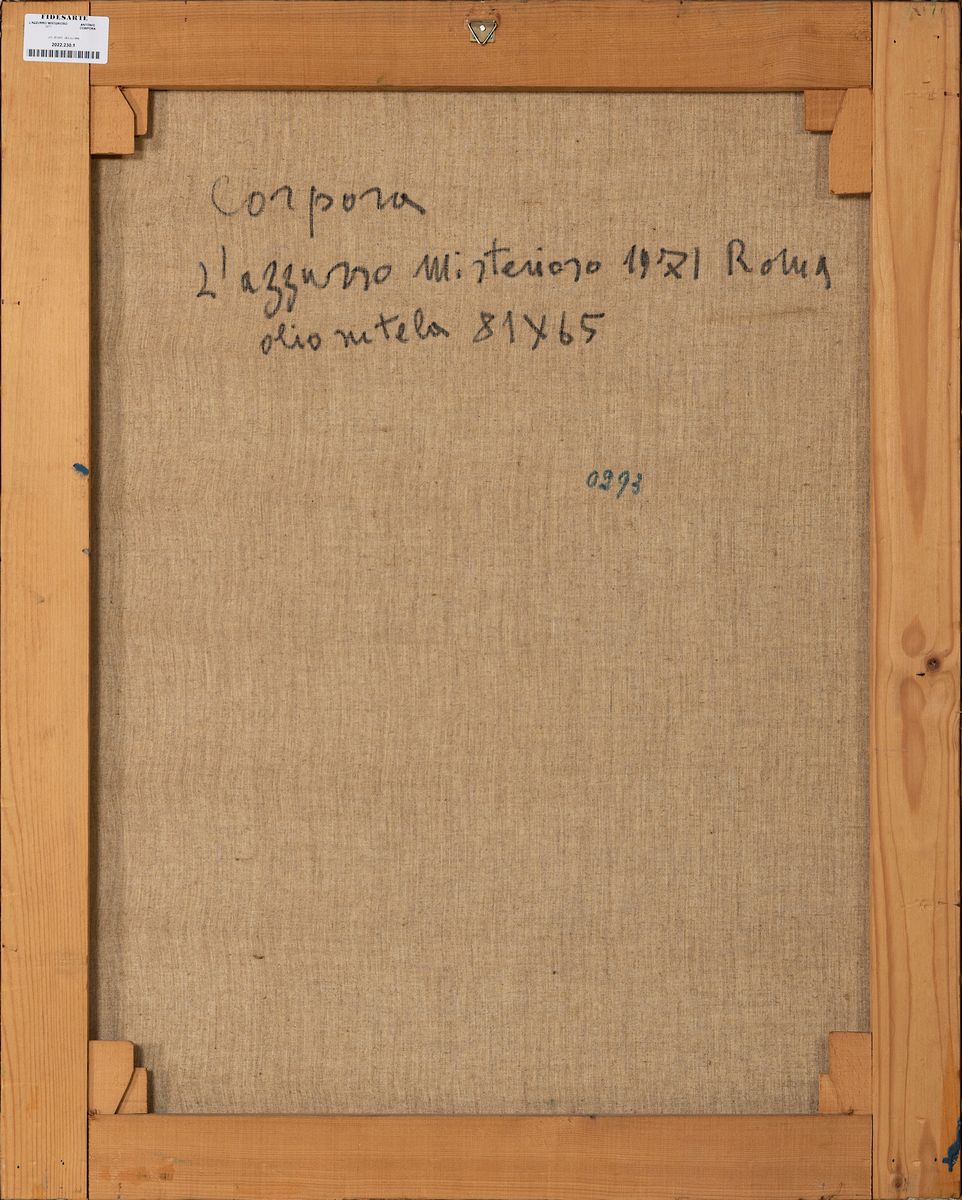 FIDESARTE
L'AZZURRO MISTERIOSO ANTONIO
CORPORA
2022.230.1
Corpora
L'azzurro Misterioso 1971 Roma
olio su tela 81X65
0293